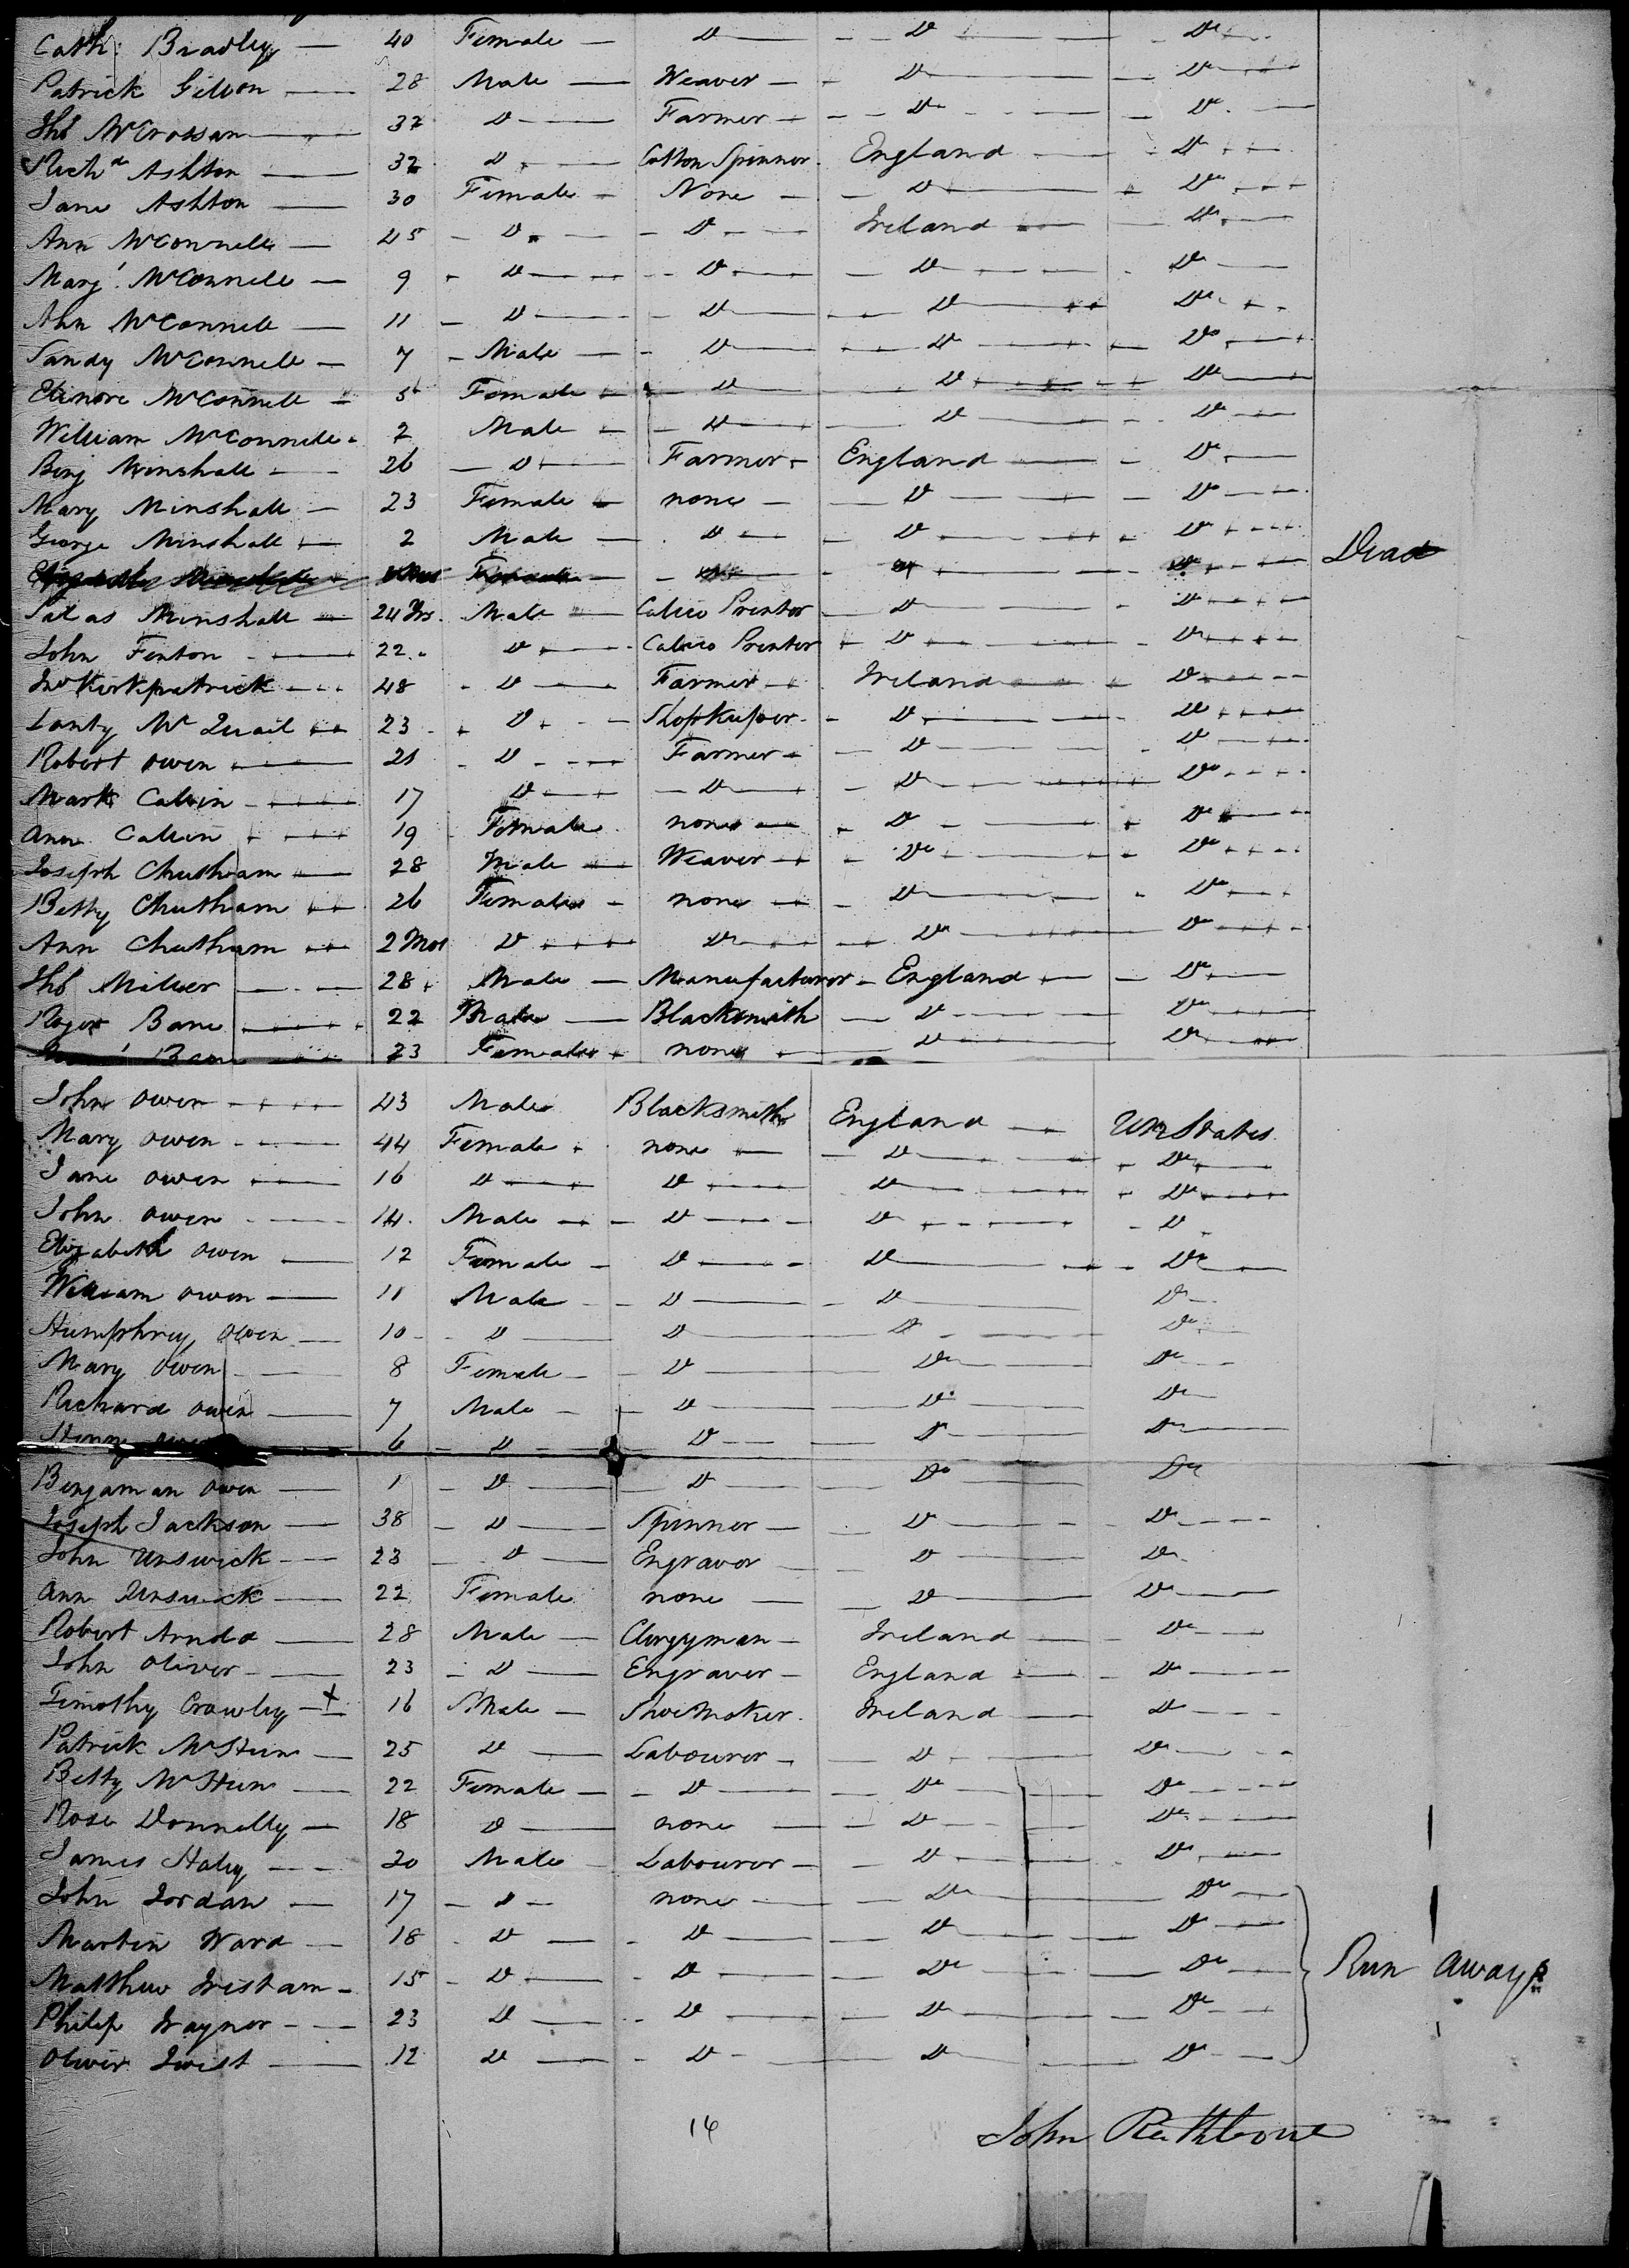 Cath: Bradley — 40 Female — Do — Do — Do
Patrick Gibson — 28 Male — Weaver — Do — Do
Thos McCrossan — 37 Do — Farmer — Do — Do
Richd Ashton — 32 Do — Cotton Spinner England — Do
Jane Ashton — 30 Female — None — Do — Do
Ann McConnell — 45 Do — Do — Ireland — Do
Marg't McConnell — 9 Do — Do — Do — Do
Ann McConnell — 11 Do — Do — Do — Do
Sandy McConnell — 7 Male — Do — Do — Do
Elinore McConnell — 5 Female — Do — Do — Do
William McConnell — 2 Male — Do — Do — Do
Benj Minshall — 26 Do — Farmer — England — Do
Mary Minshall — 23 Female — none — Do — Do
George Minshall — 2 Male — Do — Do — Do
Dead
Silas Minshall — 24 Yrs. Male — Calico Printer — Do — Do
John Fenton — 22 Do — Calico Printer — Do — Do
Jno Kirkpatrick — 48 Do — Farmer — Ireland — Do
Lanty McQuail — 23 Do — Shopkeeper — Do — Do
Robert Owen — 21 Do — Farmer — Do — Do
Mark Calvin — 17 Do — Do — Do — Do
Ann Calvin — 19 Female none — Do — Do
Joseph Cheetham — 28 Male — Weaver — Do — Do
Betty Cheetham — 26 Female — none — Do — Do
Ann Cheetham — 2 Mos Do — Do — Do — Do
Thos Miller — 28 Male — Manufacturer — England — Do
Roger Bane — 22 Male — Blacksmith — Do — Do
Bane — 23 Female — none — Do — Do
John Owen — 43 Male Blacksmith England — Un States
Mary Owen — 44 Female none — Do — Do
Jane Owen — 16 Do — Do — Do — Do
John Owen — 14 Male — Do — Do — Do
Elizabeth Owen — 12 Female — Do — Do — Do
William Owen — 11 Male — Do — Do — Do
Humphrey Owen — 10 Do — Do — Do — Do
Mary Owen — 8 Female — Do — Do — Do
Richard Owen — 7 Male — Do — Do — Do
Henry Owen 6 — Do — Do — Do — Do
Benjaman Owen — 1 — Do — Do — Do — Do
Joseph Jackson — 38 — Do — Spinner — Do — Do
John Unswick — 23 — Do — Engraver — Do — Do
Ann Unswick — 22 Female none — Do — Do
Robert Arnold — 28 Male — Clergyman — Ireland — Do
John Oliver — 23 — Do — Engraver — England — Do
Timothy Crowley — + 16 Male — Shoe Maker. Ireland — Do
Patrick McHern — 25 Do — Labourer — Do — Do
Betty McHern — 22 Female — Do — Do — Do
Rose Donnelly — 18 Do — none — Do — Do
James Haley — 20 Male — Labourer — Do — Do
John Jordan — 17 — Do — none — Do — Do
Martin Ward — 18 Do — Do — Do — Do
Matthew Tristam — 15 — Do — Do — Do — Do
Run aways
Philip Traynor — 23 Do — Do — Do — Do
Oliver Twist — 12 Do — Do — Do — Do
14
John Rathbone